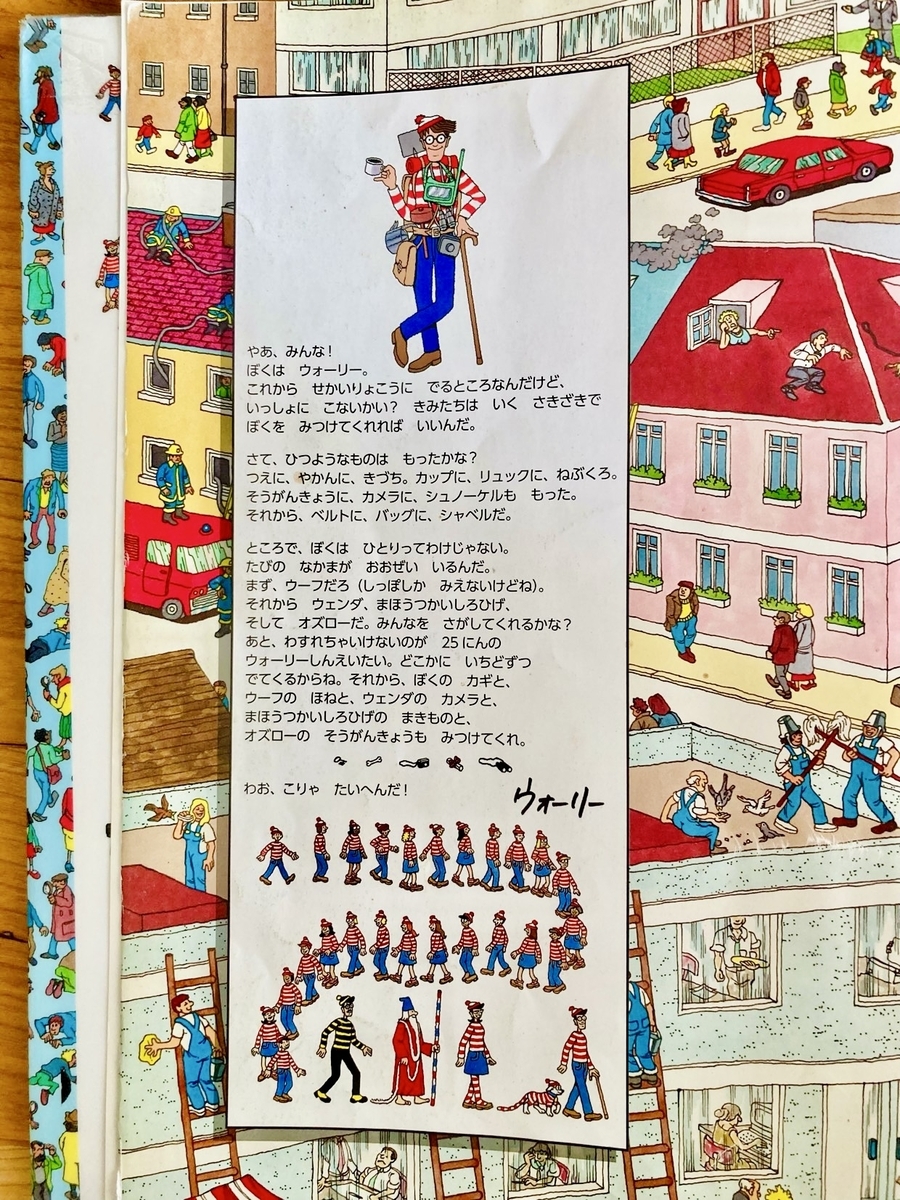 やあ、みんな！
ぼくは　ウォーリー。
これから　せかいりょこうに　でるところなんだけど、
いっしょに　こないかい？　きみたちは　いく　さきざきで
ぼくを　みつけてくれれば　いいんだ。
さて、ひつようなものは　もったかな？
つえに、やかんに、きづち。カップに、リュックに、ねぶくろ。
そうがんきょうに、カメラに、シュノーケルも　もった。
それから、ベルトに、バッグに、シャベルだ。
ところで、ぼくは　ひとりってわけじゃない。
たびの　なかまが　おおぜい　いるんだ。
まず、ウーフだろ（しっぽしか　みえないけどね）。
それから　ウェンダ、まほうつかいしろひげ、
そして　オズローだ。みんなを　さがしてくれるかな？
あと、わすれちゃいけないのが　25にんの
ウォーリーしんえいたい。どこかに　いちどずつ
でてくるからね。それから、ぼくの　カギと、
ウーフの　ほねと、ウェンダの　カメラと、
まほうつかいしろひげの　まきものと、
オズローの　そうがんきょうも　みつけてくれ。
わお、こりゃ　たいへんだ！
ウォーリー